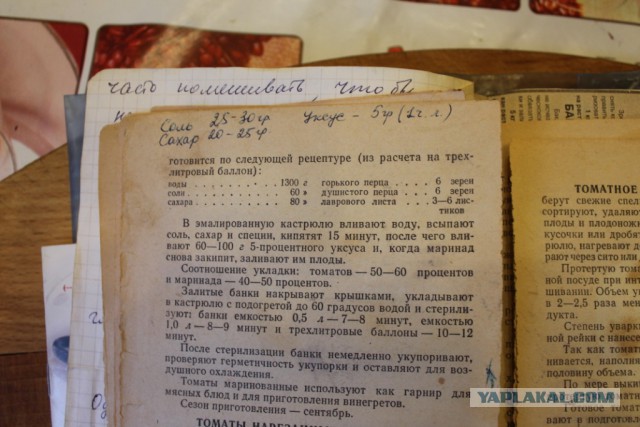 часто помешивать, чтобы
Соло 25-30гр уксус - 5гр (1ч. л.)
Сахар 20-25гр
готовится по следующей рецептуре (из расчета на трех-
литровый баллон):
воды . . . . . . . . 1300 г горького перца . . . . 6 зерен
соли . . . . . . . . 60 » душистого перца . . . 6 зерен
сахара . . . . . . . 80 » лаврового листа . . . 3—6 лис-
тиков
В эмалированную кастрюлю вливают воду, всыпают
соль, сахар и специи, кипятят 15 минут, после чего вли-
вают 60—100 г 5-процентного уксуса и, когда маринад
снова закипит, заливают им плоды.
Соотношение укладки: томатов — 50—60 процентов
и маринада — 40—50 процентов.
Залитые банки накрывают крышками, укладывают
в кастрюлю с подогретой до 60 градусов водой и стерили-
зуют: банки емкостью 0,5 л — 7—8 минут, емкостью
1,0 л — 8—9 минут и трехлитровые баллоны — 10—12
минут.
После стерилизации банки немедленно укупоривают,
проверяют герметичность укупорки и оставляют для воз-
душного охлаждения.
Томаты маринованные используют как гарнир для
мясных блюд и для приготовления винегретов.
Сезон приготовления — сентябрь.
ТОМАТЫ
ТОМАТНОЕ
берут свежие
сортируют,
плоды и
кусочки или
нагревают
рают через сито или
Протертую
ной посуде при
шивании. Объем
в 2—2,5 раза
дукта.
Степень
ной рейки с
Так как
нивается,
половину объема.
По мере
Готовое
YAPLAKAL.COM